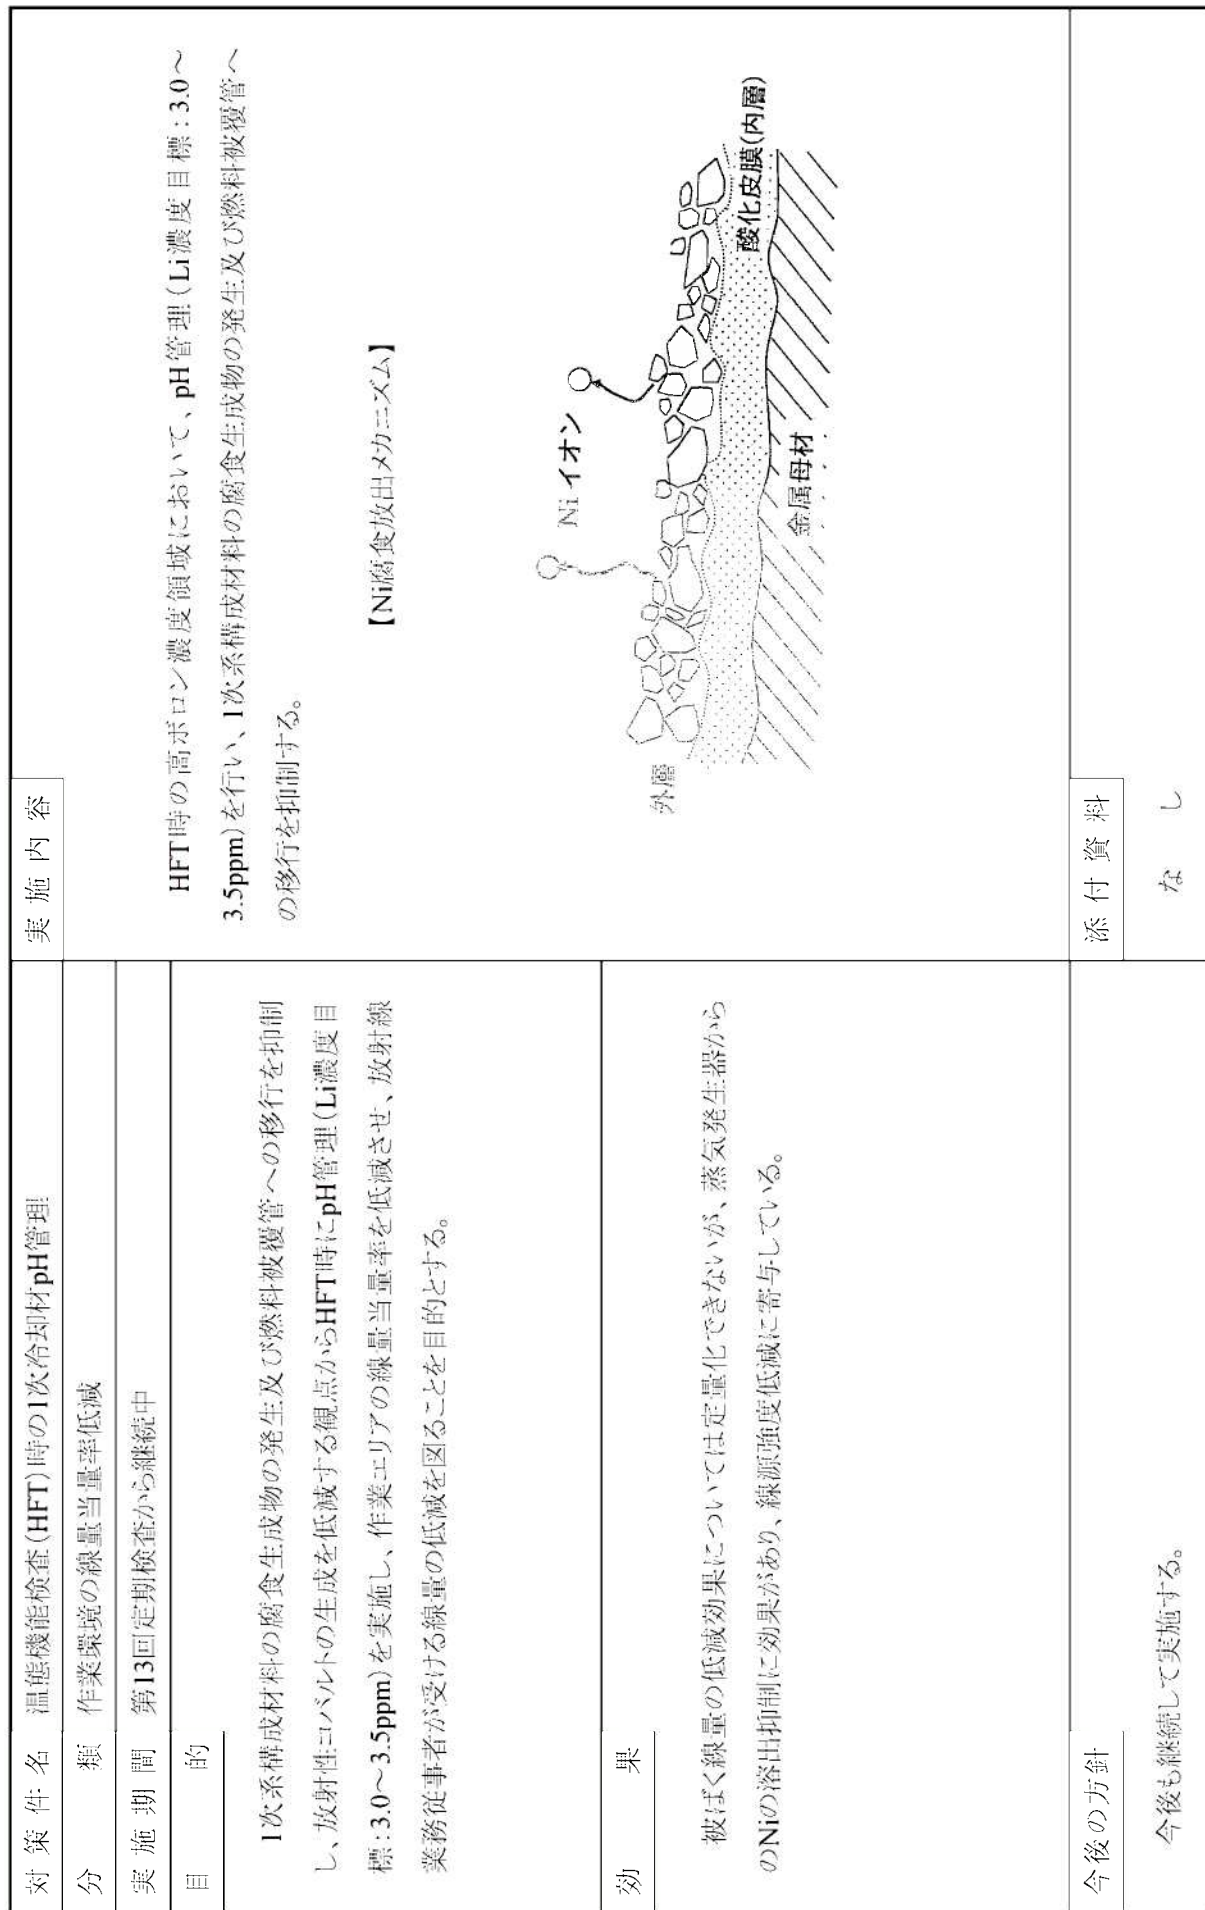 対策件名 温態機能検査(HFT)時の1次冷却材pH管理
分類 作業環境の線量当量率低減
実施期間 第13回定期検査から継続中
目的
1次系構成材料の腐食生成物の発生及び燃料被覆管への移行を抑制
し、放射性コバルトの生成を低減する観点からHFT時にpH管理(Li濃度目
標:3.0～3.5ppm)を実施し、作業エリアの線量当量率を低減させ、放射線
業務従事者が受ける線量の低減を図ることを目的とする。
効果
被ばく線量の低減効果については定量化できないが、蒸気発生器から
のNiの溶出抑制に効果があり、線源強度低減に寄与している。
今後の方針
今後も継続して実施する。
実施内容
HFT時の高ボロン濃度領域において、pH管理(Li濃度目標:3.0～
3.5ppm)を行い、1次系構成材料の腐食生成物の発生及び燃料被覆管へ
の移行を抑制する。
【Ni腐食放出メカニズム】
Ni イオン
外層
酸化皮膜(内層)
金属母材
添付資料
なし